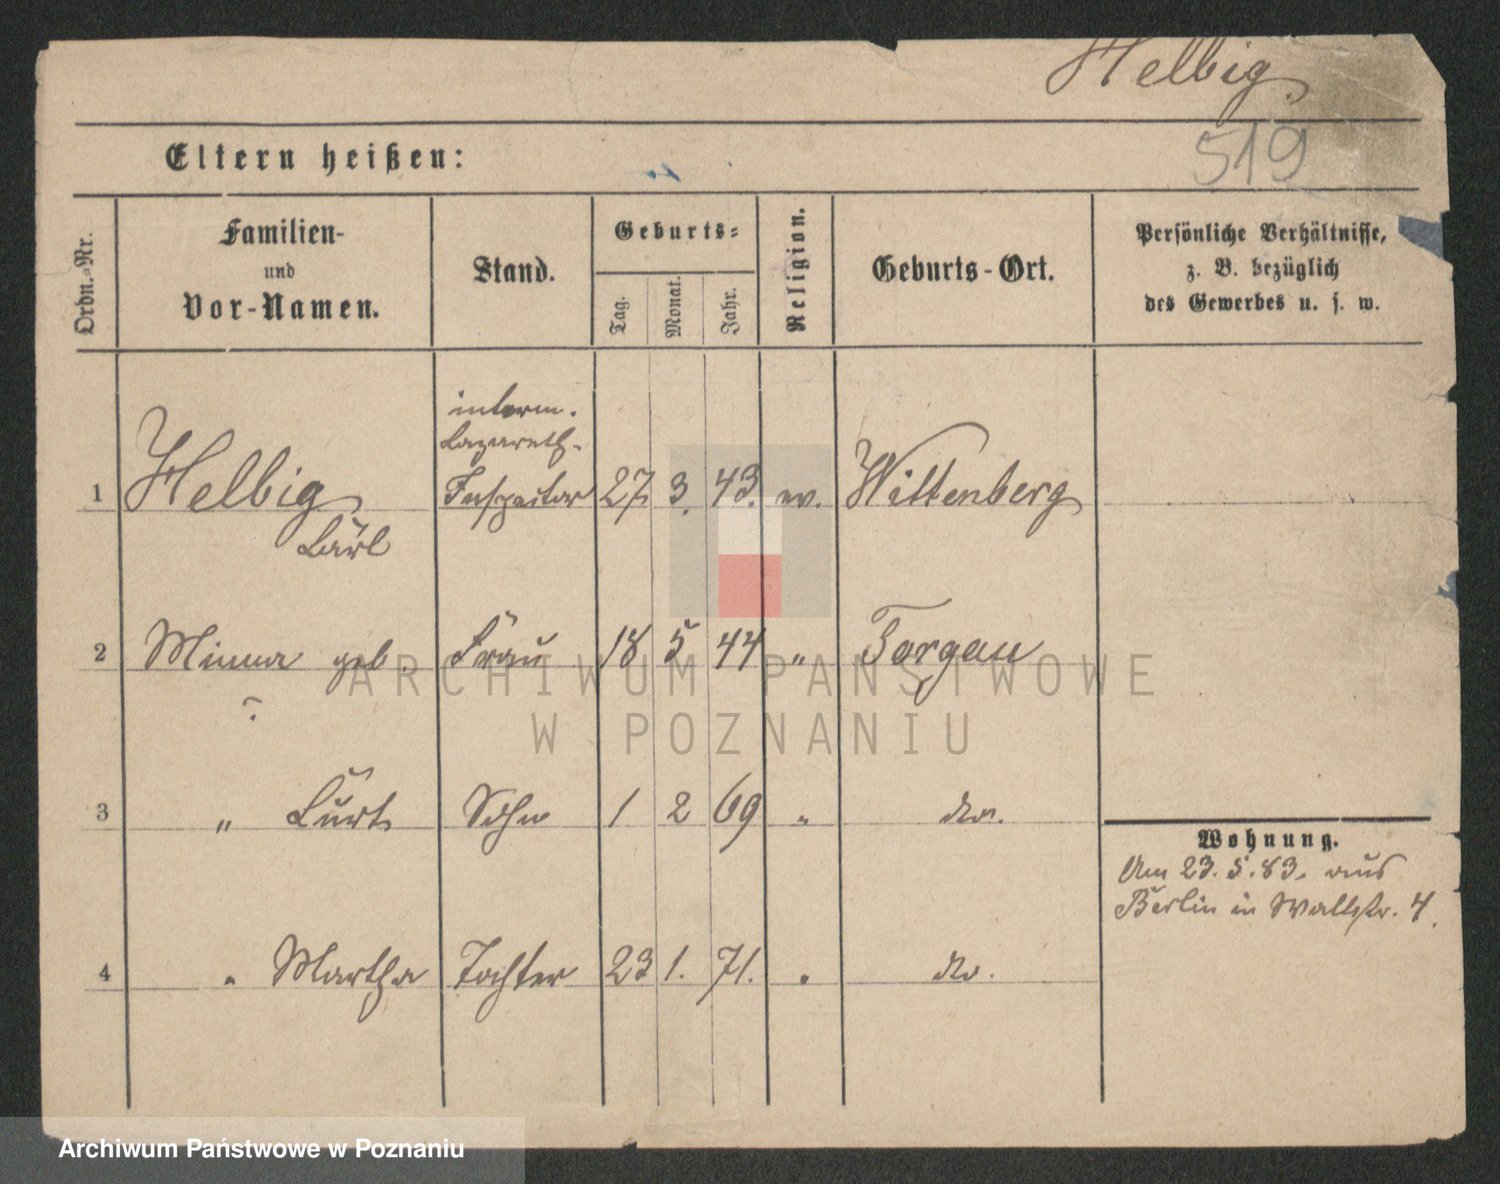 Helbig.
519
Eltern heißen:
Ordn.-Nr.
Familien-
und
Vor-Namen.
Stand.
Geburts-
Tag.
Monat.
Jahr.
Religion.
Geburts-Ort.
Persönliche Verhältnisse,
z. B. bezüglich
des Gewerbes u. s. w.
interm.
Lazareth-
1 Helbig Inspector 27. 3. 43. ev. Wittenberg
Carl
2 Minna geb. Frau 18 5 44 " Torgau
?
3 " Curt Sohn 1 2 69 " do.
Wohnung.
Am 23. 5. 83. aus
Berlin in Wallstr. 4.
4 " Martha Tochter 23 1. 71. " do.
ARCHIWUM PAŃSTWOWE
W POZNANIU
Archiwum Państwowe w Poznaniu